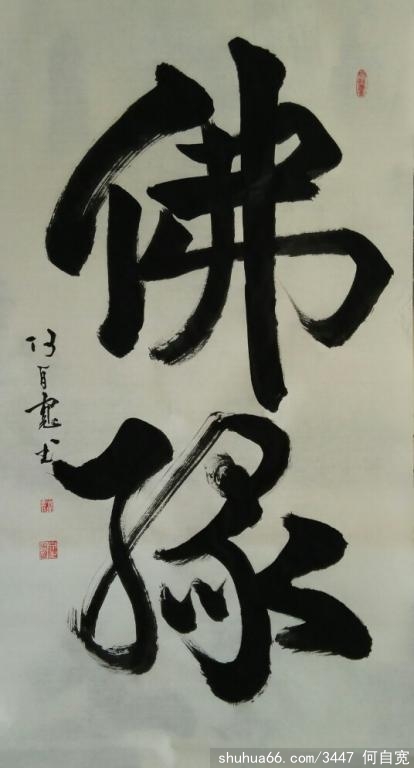 佛缘
何自宽书
shuhua66.com/3447 何自宽